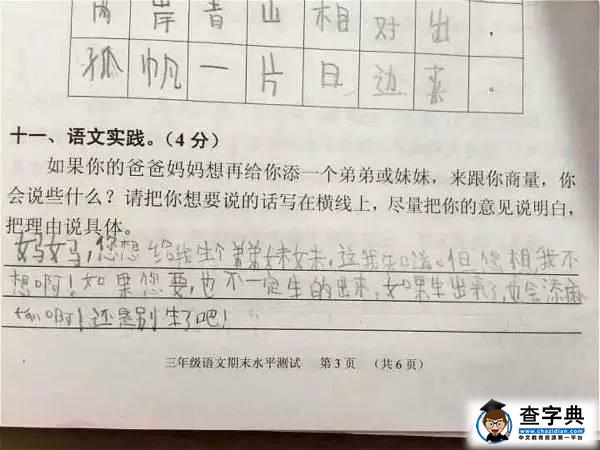 两岸青山相对出，
孤帆一片日边来。
十一、语文实践。（4分）
如果你的爸爸妈妈想再给你添一个弟弟或妹妹，来跟你商量，你
会说些什么？请把你想要说的话写在横线上，尽量把你的意见说明白，
把理由说具体。
妈妈，您想给我生个弟弟妹妹，这我知道。但您想，我不
想啊！如果您要，也不一定生的出来，如果生出来了，也会添麻
烦啊！还是别生了吧！
三年级语文期末水平测试 第3页 （共6页）
查字典
www.chazidian.com
中文教育资源第一平台